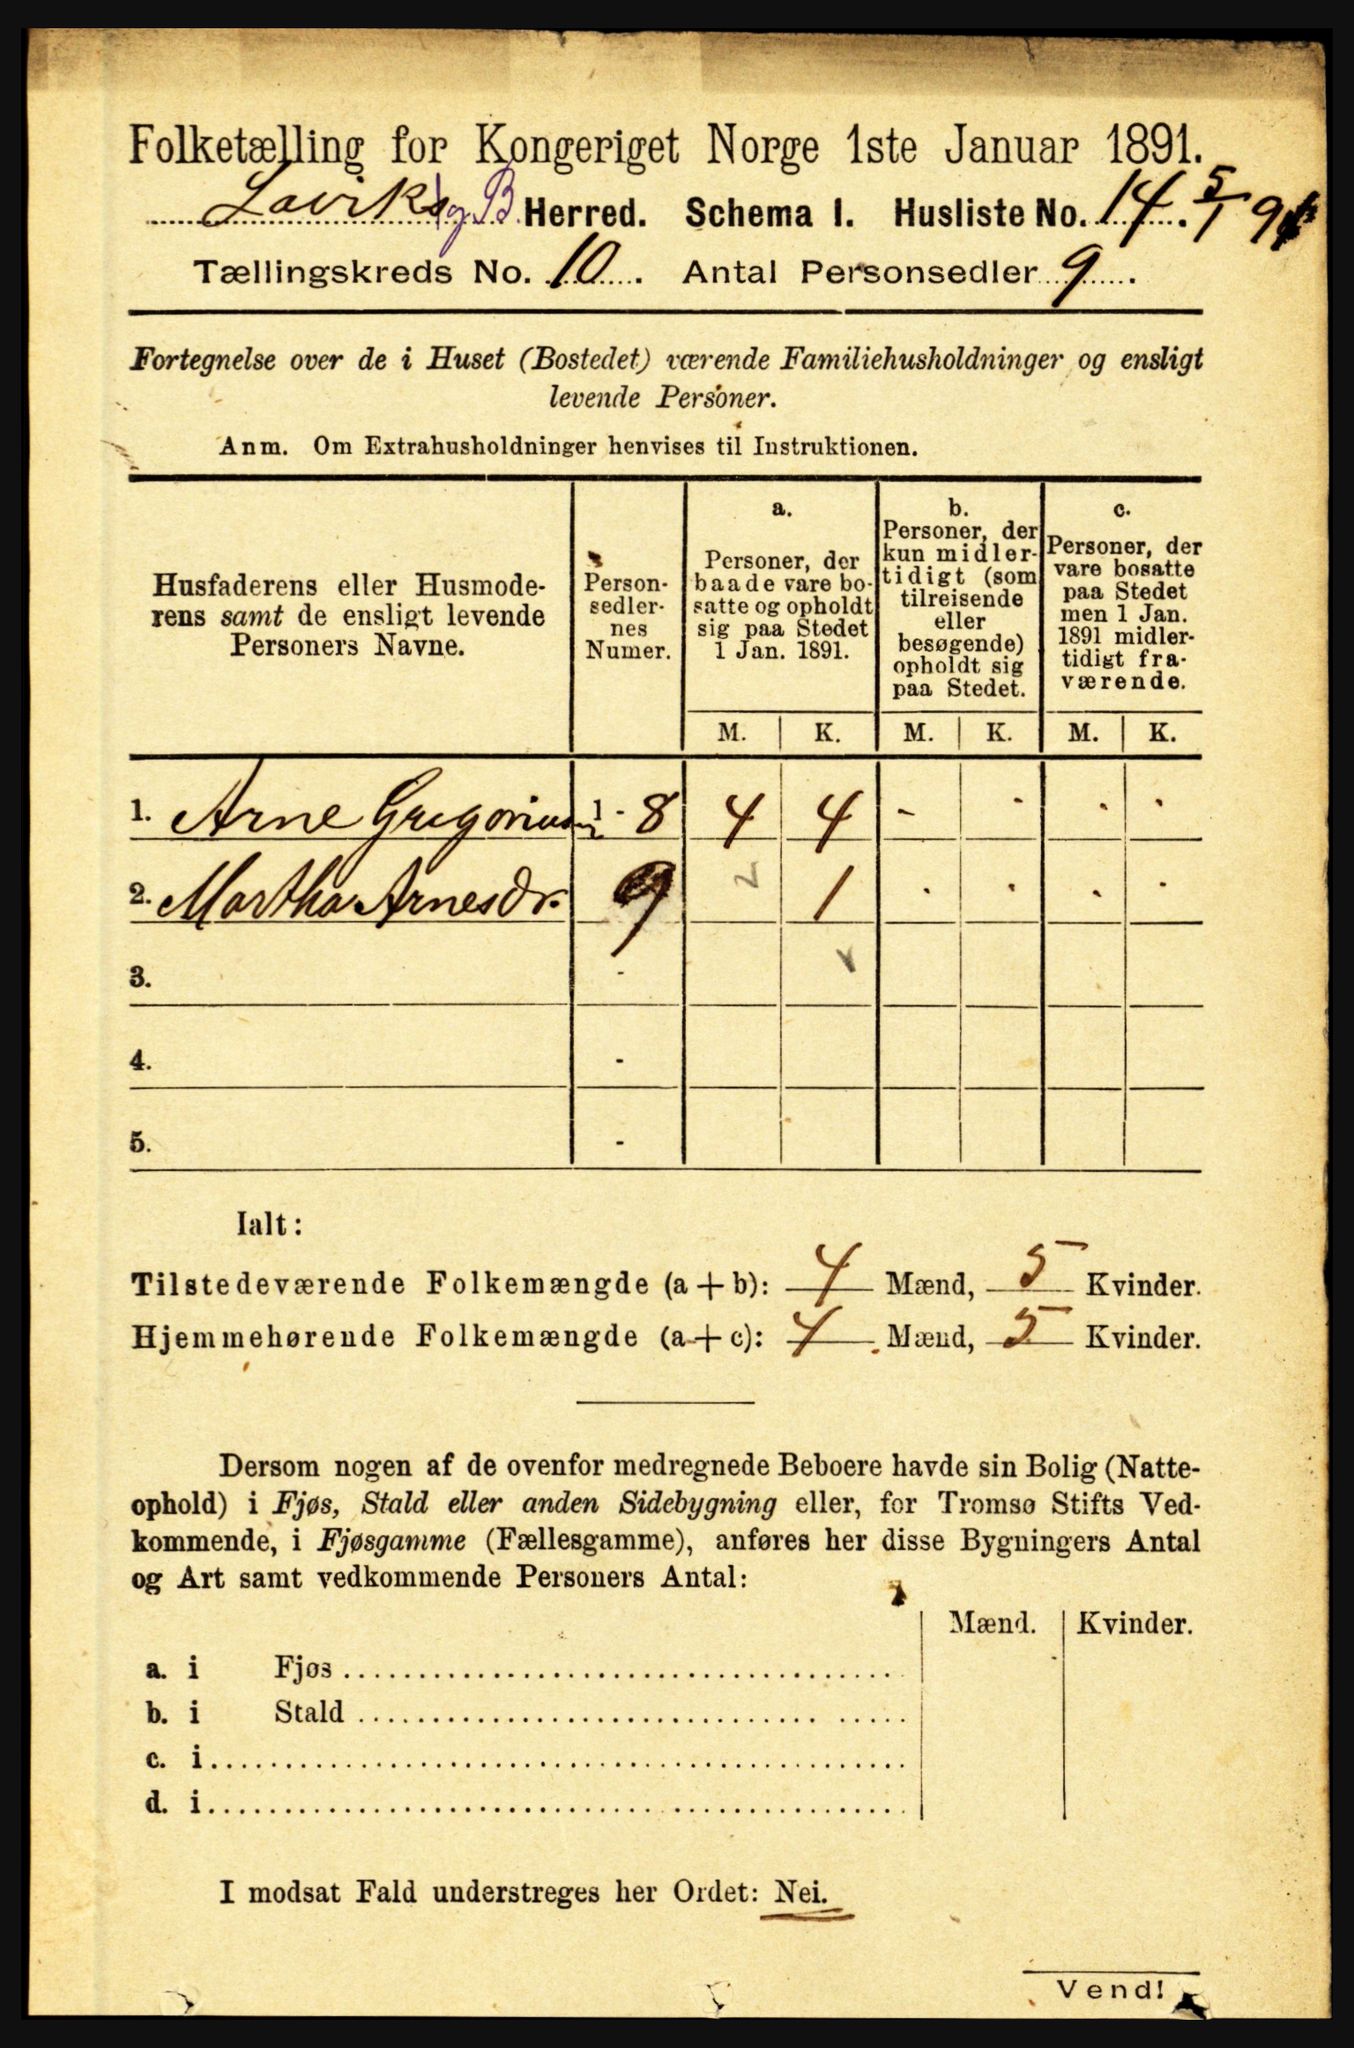 Folketælling for Kongeriget Norge 1ste Januar 1891.
Lavik og B Herred. Schema I. Husliste No. 14. 5/1 91
Tællingskreds No. 10. Antal Personsedler 9.
Fortegnelse over de i Huset (Bostedet) værende Familiehusholdninger og ensligt
levende Personer.
Anm. Om Extrahusholdninger henvises til Instruktionen.
Husfaderens eller Husmode-
rens samt de ensligt levende
Personers Navne.
Person-
sedler-
nes
Numer.
a.
Personer, der
baade vare bo-
satte og opholdt
sig paa Stedet
1 Jan. 1891.
b.
Personer, der
kun midler-
tidigt (som
tilreisende
eller
besøgende)
opholdt sig
paa Stedet.
c.
Personer, der
vare bosatte
paa Stedet
men 1 Jan.
1891 midler-
tidigt fra-
værende.
M. K. M. K. M. K.
1. Arne Gregoriusen 1 - 8 4 4 - - . .
2. Martha Arnesdr. 9 2 1 . . . .
3. -
4. -
5. -
Ialt:
Tilstedeværende Folkemængde (a + b): 4 Mænd, 5 Kvinder.
Hjemmehørende Folkemængde (a + c): 4 Mænd, 5 Kvinder.
Dersom nogen af de ovenfor medregnede Beboere havde sin Bolig (Natte-
ophold) i Fjøs, Stald eller anden Sidebygning eller, for Tromsø Stifts Ved-
kommende, i Fjøsgamme (Fællesgamme), anføres her disse Bygningers Antal
og Art samt vedkommende Personers Antal:
Mænd. Kvinder.
a. i Fjøs
b. i Stald
c. i
d. i
I modsat Fald understreges her Ordet: Nei.
Vend!